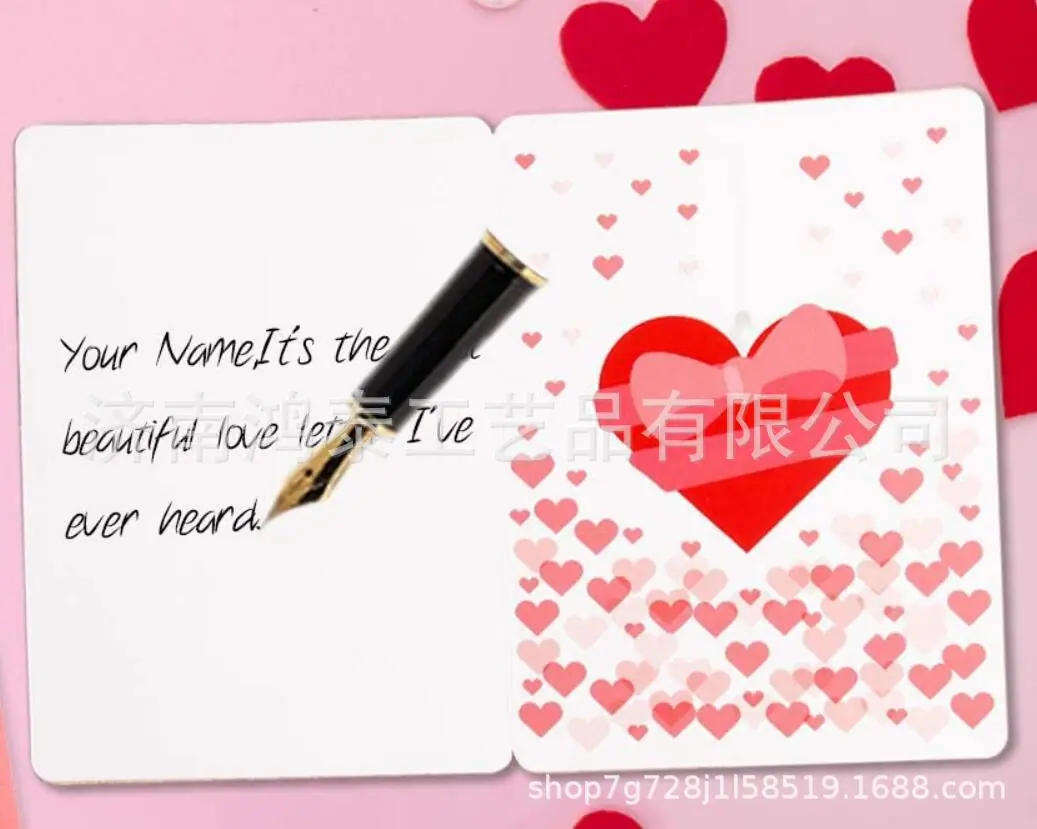 Your Name,It's the
beautiful love let I've
ever heard.
济南鸿泰工艺品有限公司
shop7g728j1l58519.1688.com